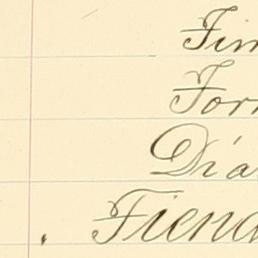 Fin
For
Dia
Fiend